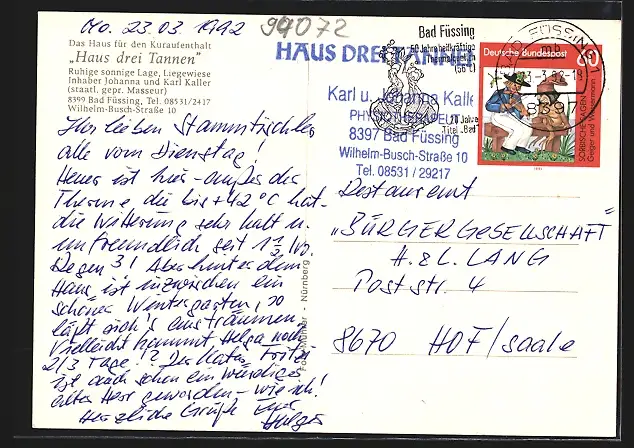 Mo. 23.03.1992
94072
Das Haus für den Kuraufenthalt
"Haus drei Tannen"
Ruhige sonnige Lage, Liegewiese
Inhaber Johanna und Karl Kaller
(staatl. gepr. Masseur)
8399 Bad Füssing, Tel. 08531/2417
Wilhelm-Busch-Straße 10
Ihr lieben Stammtischler
alle vom Dienstag!
Heuer ist hier - außer der
Therme die bis +42°C hat -
die Witterung sehr kalt u.
unfreundlich seit 1½ Wo.
Regen! Aber hinter dem
Haus ist inzwischen ein
schöner Wintergarten, so
läßt sich's austräumen.
Vielleicht kommt Helga noch
2/3 Tage!? Der Kater Fritzi
ist auch schon ein würdiger
alter Herr geworden - wie ich!
Herzliche Grüße Euer
Holger
Nürnberg
HAUS DREI TANNEN
Karl u. Johanna Kaller
PHYSIOTHERAPEUT
8397 Bad Füssing
Wilhelm-Busch-Straße 10
Tel. 08531 / 29217
Bad Füssing
50 Jahre heilkräftige
Thermalquelle
(56°C)
Titel "Bad
BAD FÜSSING 1
mb
-3.92-18
8397
Deutsche Bundespost
60
SORBISCHE SAGEN
Geiger und Wassermann
Restaurant
"BÜRGERGESELLSCHAFT"
H. & L. LANG
Poststr. 4
8670 HOF/Saale